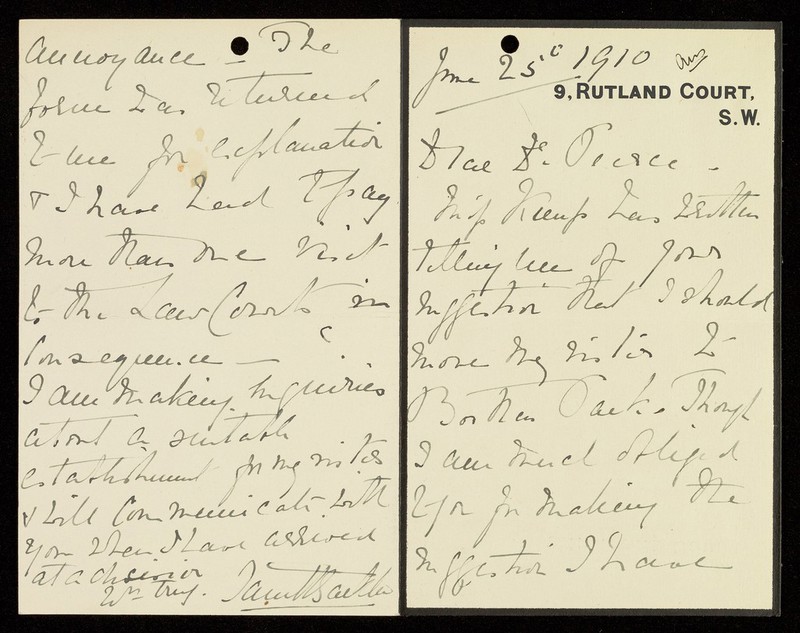 June 25th 1910
Ans
9, RUTLAND COURT,
S.W.
Dear Dr Pierce -
Miss Kemp has written
telling me of your
suggestion that I should
move my sister to
Park. Though
I am much obliged
to you for making the
suggestion I have
annoyance - The
form was returned
to me for explanation
& I have had to pay
more than one visit
to the Law Courts in
consequence -
I am making inquiries
about a suitable
establishment for my sister
& will communicate with
you when I have arrived
at a decision
Yrs truly.